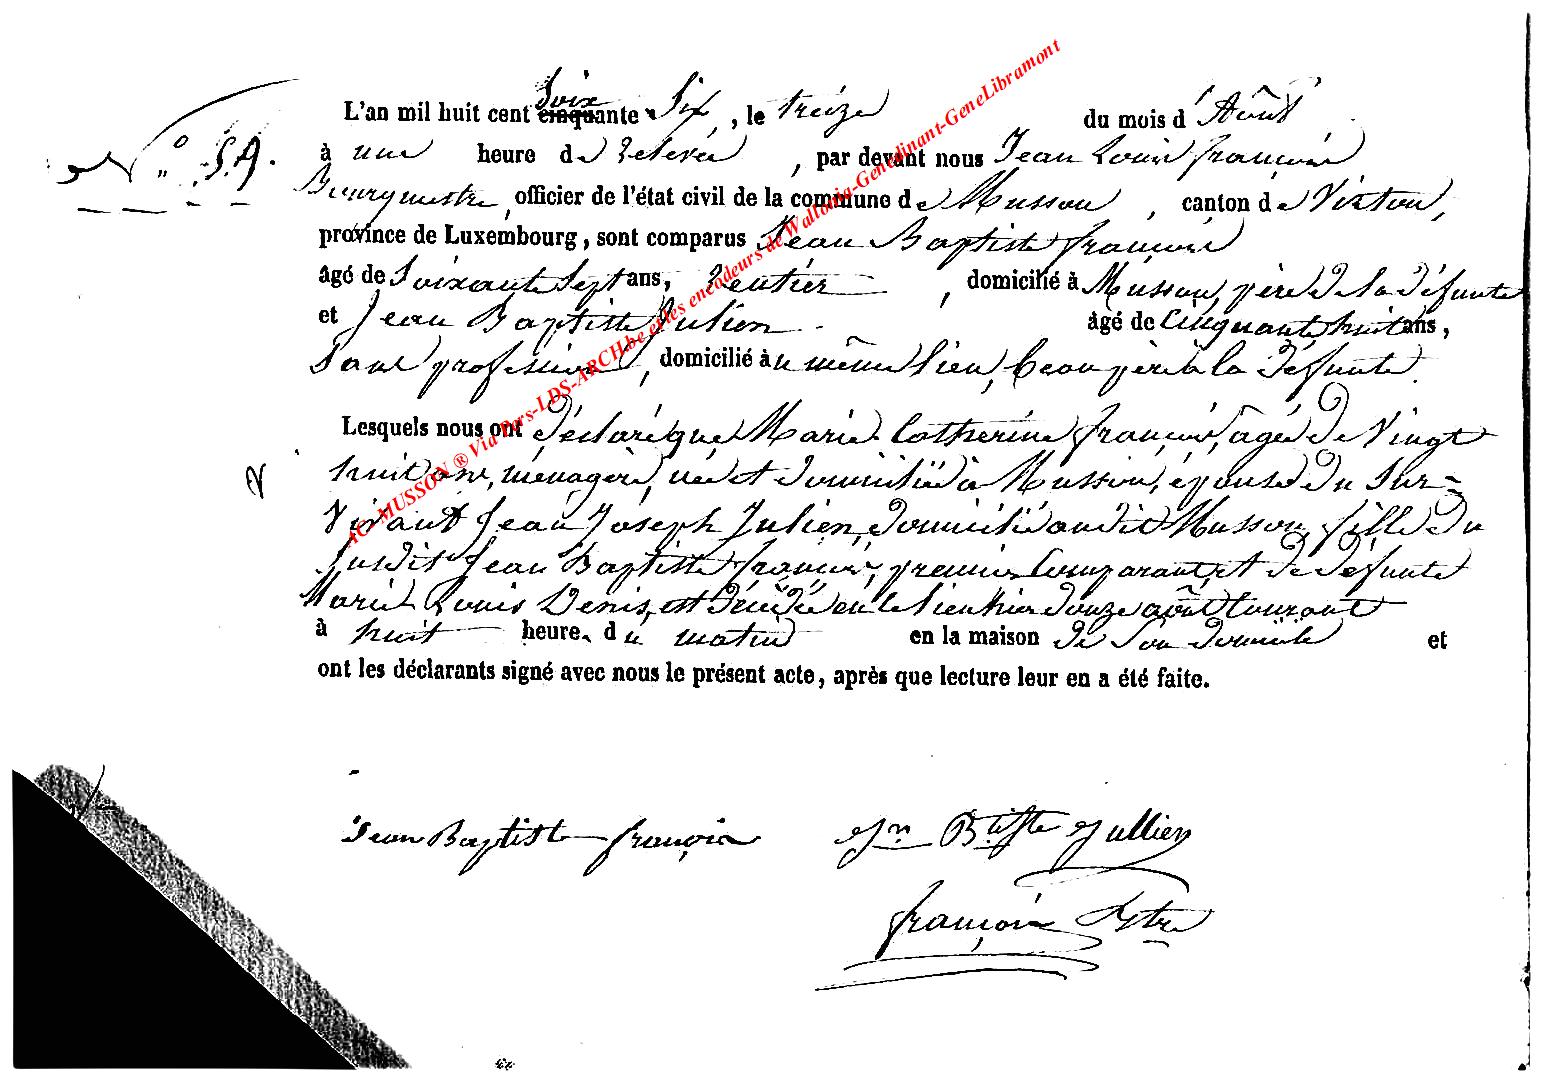 L'an mil huit cent soixante Six, le treize du mois d'Août
N° 59.
à une heure de relevée, par devant nous Jean Louis François
Bourgmestre, officier de l'état civil de la commune de Musson, canton de Virton,
province de Luxembourg, sont comparus Jean Baptiste François
âgé de Soixante Sept ans, rentier, domicilié à Musson, père de la défunte
et Jean Baptiste Julien âgé de Cinquante huit ans,
Sans profession, domicilié au même lieu, beau père à la défunte.
Lesquels nous ont déclaré que Marie Catherine François, âgée de Vingt
huit ans, ménagère, née et domiciliée à Musson, épouse du Sur-
Vivant Jean Joseph Julien, domicilié audit Musson, fille du
Susdit Jean Baptiste François, premier Comparant, et de défunte
Marie Louis Denis, est décédée en ce lieu hier douze août courant
à huit heures du matin en la maison de Son domicile et
ont les déclarants signé avec nous le présent acte, après que lecture leur en a été faite.
Jean Baptiste françois Jn Btiste Jullien
françois Bstre
AC-MUSSON ® Via Pers-LDS-ARCH.be et les encodeurs de Wallonia-Genedinant-GeneLibramont